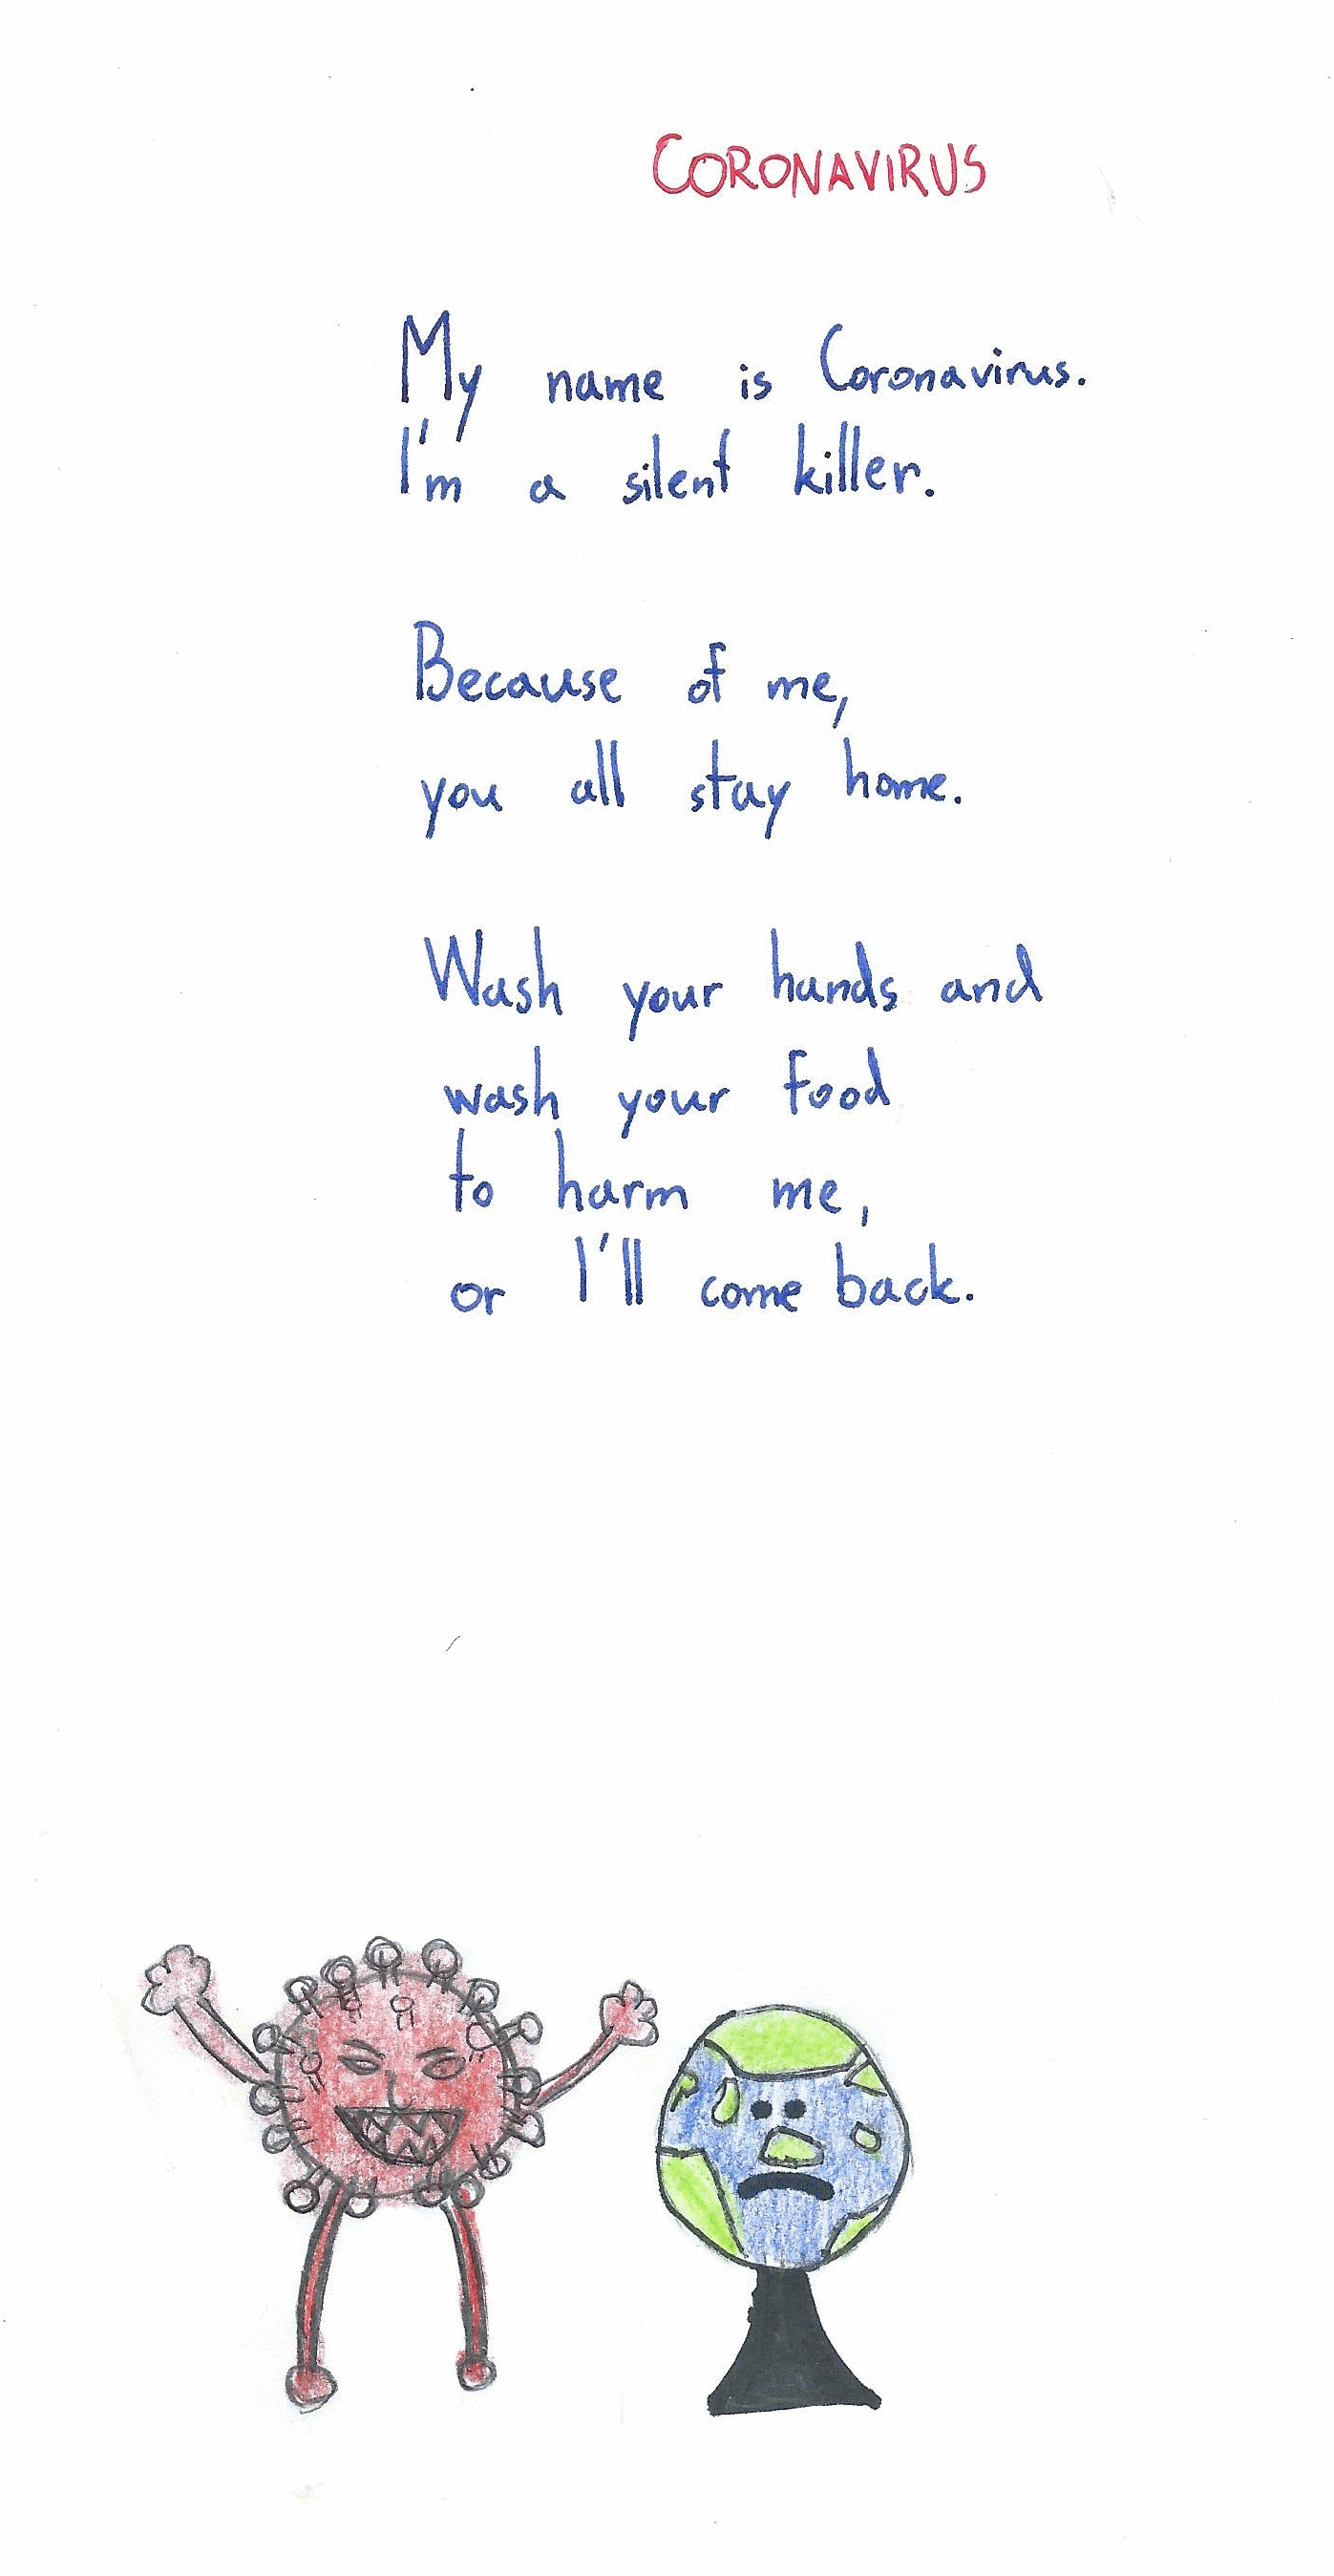 CORONAVIRUS
My name is Coronavirus.
I'm a silent killer.
Because of me,
you all stay home.
Wash your hands and
wash your food
to harm me,
or I'll come back.